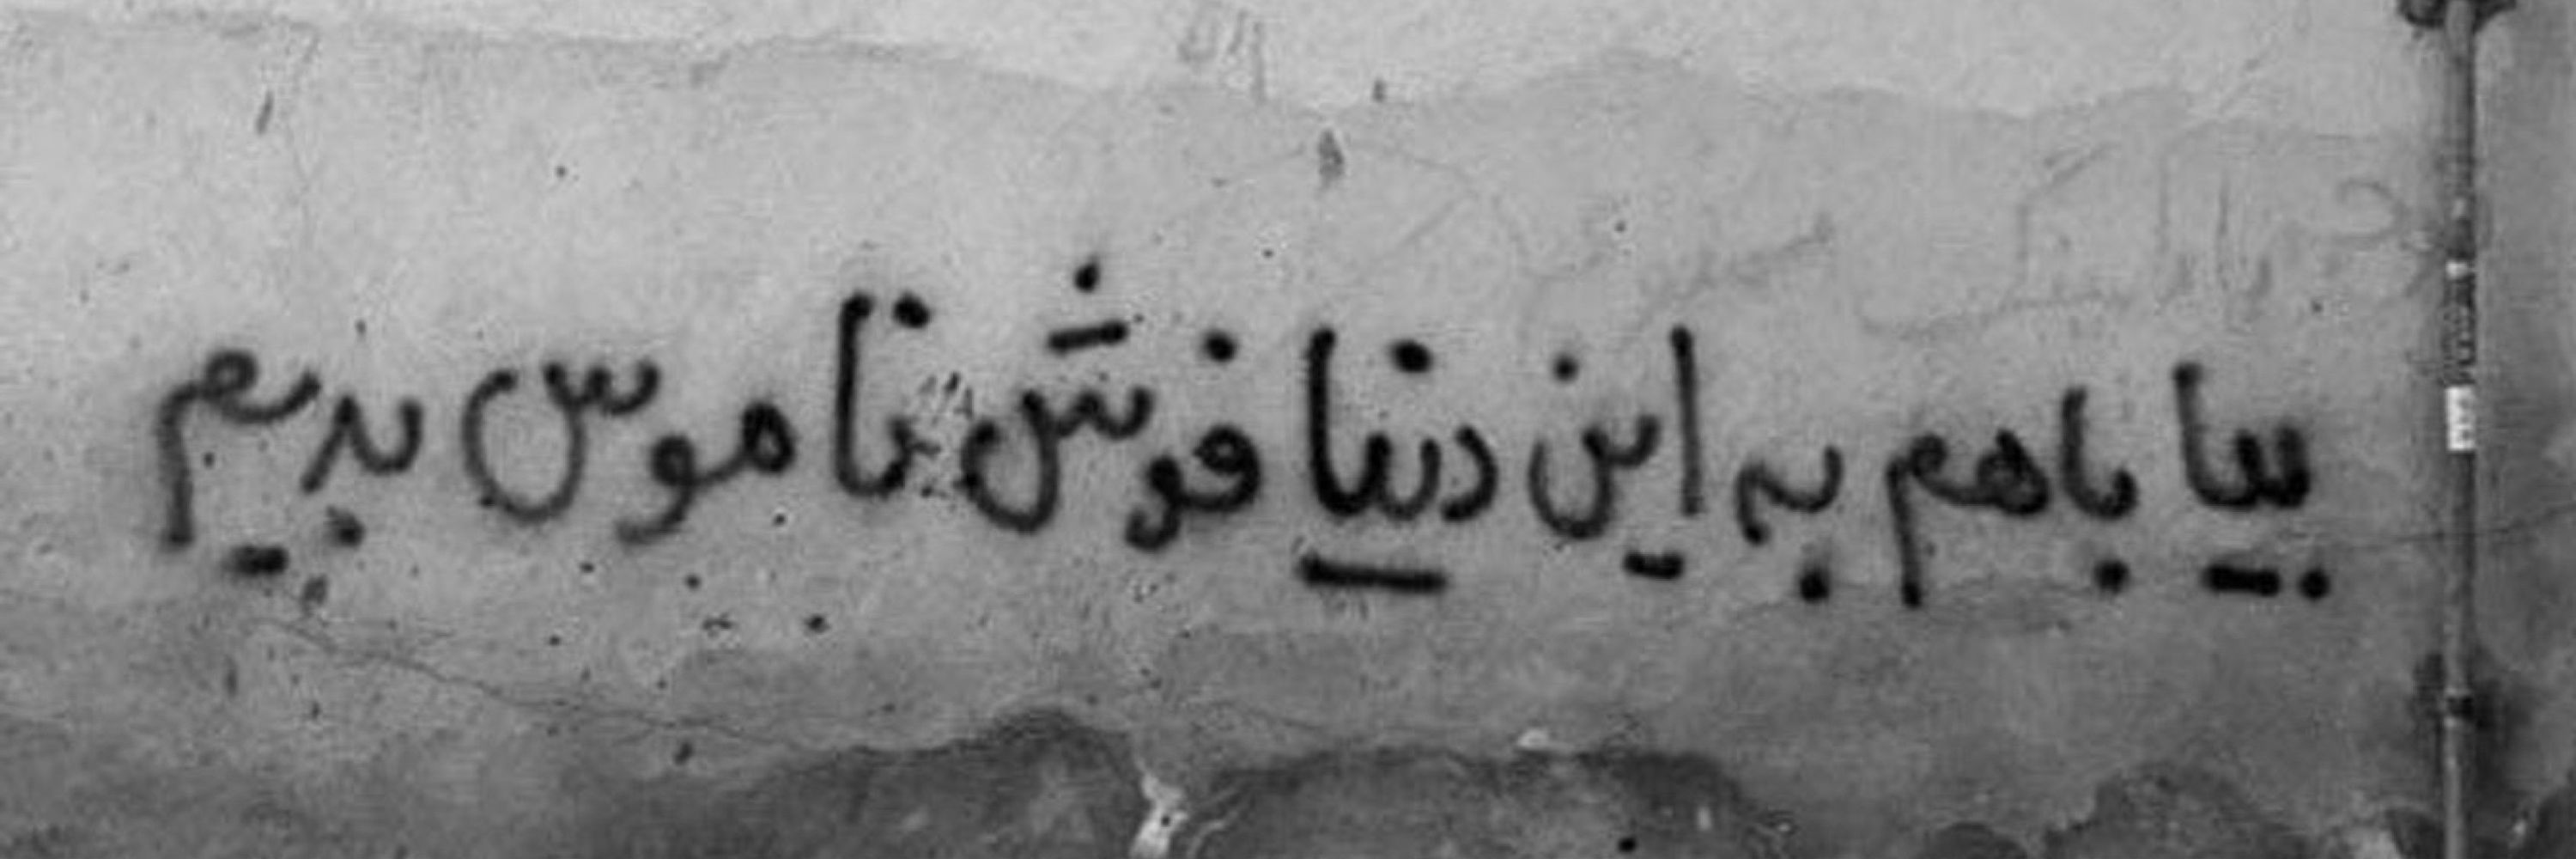 بیا باهم به این دنیا فوش ناموس بدیم